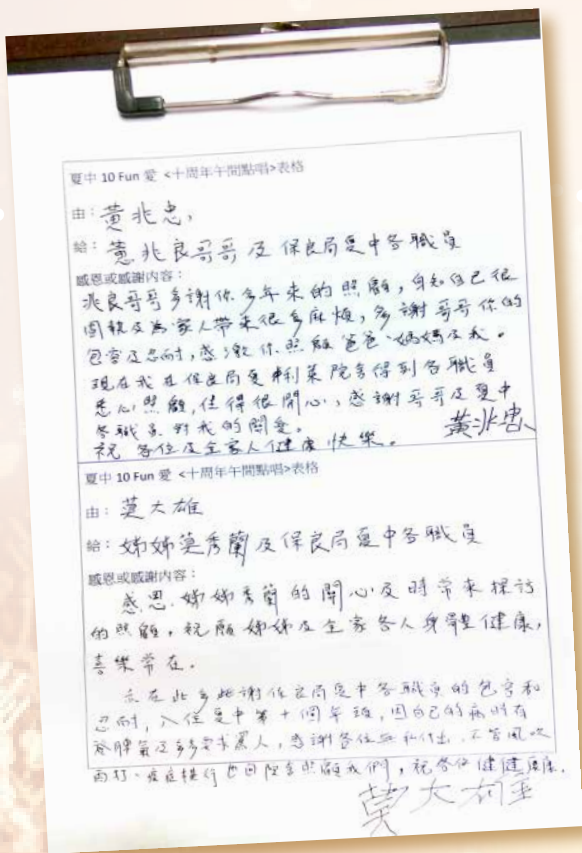 夏中 10 Fun 愛 <十周年午間點唱>表格
由：黃兆忠,
給：黃兆良哥哥 及 保良局夏中各職員
感恩或感謝內容：
兆良哥哥多謝你多年來的照顧，自知自己很
固執及為家人帶來很多麻煩，多謝哥哥你的
包容及忍耐，感激你照顧爸爸、媽媽及我。
現在我在保良局夏利萊院舍得到各職員
悉心照顧，住得很開心，感謝哥哥及夏中
各職員對我的關愛。
祝 各位及全家人健康快樂。 黃兆忠
夏中 10 Fun 愛 <十周年午間點唱>表格
由：莫大雄
給：姊姊莫秀蘭及保良局夏中各職員
感恩或感謝內容：
感恩.姊姊秀蘭的關心及時常來探訪
的照顧，祝願姊姊及全家各人身體健康，
喜樂常在．
在此多謝保良局夏中各職員的包容和
忍耐，入住夏中第十個年頭，因自己的病時有
發脾氣及多多要求罵人，感謝各位無私付出．不管風吹
雨打、疫症橫行也回院舍照顧我們，祝各位健健康康．
莫大雄